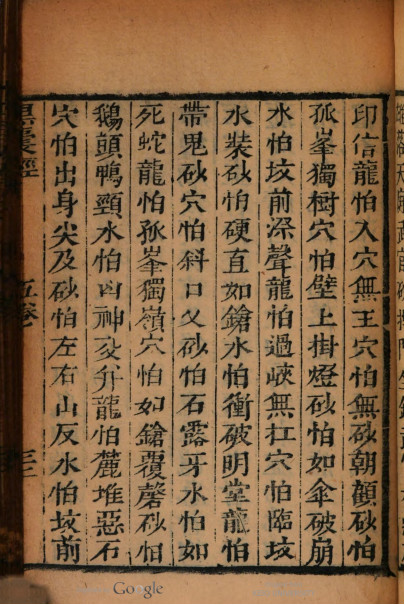 印信龍怕入穴無王穴怕無砂朝顧砂怕
孤峯獨樹穴怕壁上掛燈砂怕如傘破崩
水怕坟前深聲龍怕過峽無扛穴怕臨坟
水裝砂怕硬直如鎗水怕衝破明堂龍怕
帶鬼砂穴怕斜口父砂怕石露牙水怕如
死蛇龍怕孤峯獨嶺穴怕如鎗覆磬砂怕
鵝頭鴨頸水怕凶神交升龍怕麄堆惡石
穴怕出身尖及砂怕左右山反水怕坟前
黑囊經
五卷
三三
Google